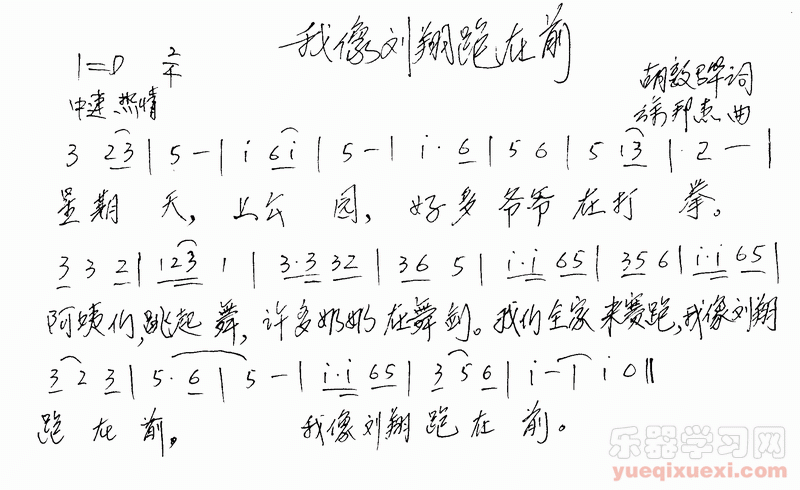 我像刘翔跑在前
1=D 2/4
中速 热情
胡敦骅词
杰曲
3 23 | 5 - | i 6i | 5 - | i· 6 | 5 6 | 5 i3 | ·2 — |
星期天，上公园，好多爷爷在打拳。
3 3 2 | 123 1 | 3·3 32 | 36 5 | i·i 65 | 35 6 | i·i 65 |
阿姨们，跳起舞，许多奶奶在舞剑。我们全家来赛跑，我像刘翔
3 2 3 | 5· 6 | 5 - | i·i 65 | 3 5 6 | i - | i 0 ‖
跑在前，我像刘翔跑在前。
乐器学习网
yueqixuexi.com